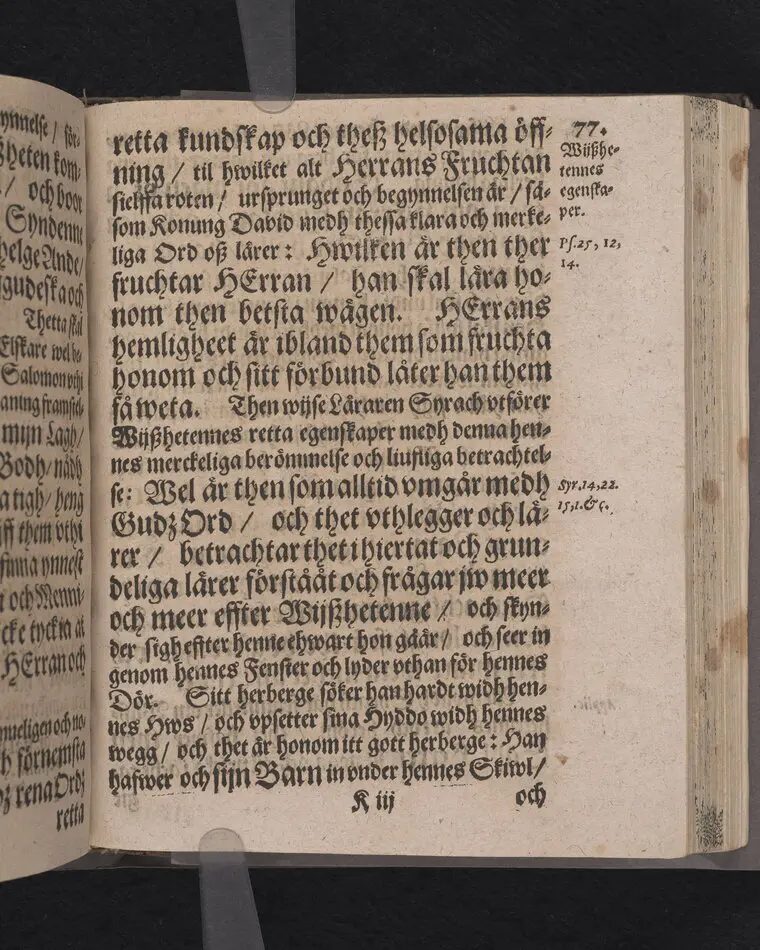 ynnelse / för-
ßheten kom-
/ och boor
Syndenne
helge Ande/
gudeska och
Thetta skal
Elskare wel
Salomon
mijn Lagh/
Bodh/
a tigh/ heng
iff them vthi
ynnest
t och Menni-
HErran och
förnemsta
rena Ordz
retta
77.
retta kundskap och theß helsosama öff-
ning / til hwilket alt Herrans Fruchtan
sielffa roten / ursprunget och begynnelsen är / så-
som Konung David medh thessa klara och merke-
liga Ord oß lärer: Hwilken är then ther
fruchtar HErran / han skal lära ho-
nom then betsta wägen. HErrans
hemligheet är ibland them som fruchta
honom och sitt förbund låter han them
få weta. Then wijse Läraren Syrach vtförer
Wijßhetennes retta egenskaper medh denna hen-
nes merckeliga berömmelse och liufliga betrachtel-
se: Wel är then som alltid vmgår medh
Gudz Ord / och thet vthlegger och lä-
rer / betrachtar thet i hiertat och grun-
deliga lärer förstååt och frågar jw meer
och meer effter Wijßhetenne / och skyn-
der sigh effter henne ehwart hon gåår / och seer in
genom hennes Fenster och lyder vthan för hennes
Dör. Sitt herberge söker han hardt widh hen-
nes Hws / och vpsetter sina Hyddo widh hennes
wegg / och thet är honom itt gott herberge: Han
hafwer och sijn Barn in vnder hennes Skiwl/
K iij
och
Wijßhe-
tennes
egenska-
per.
Ps.25, 12,
14.
Syr.14,22.
15,1.&c.